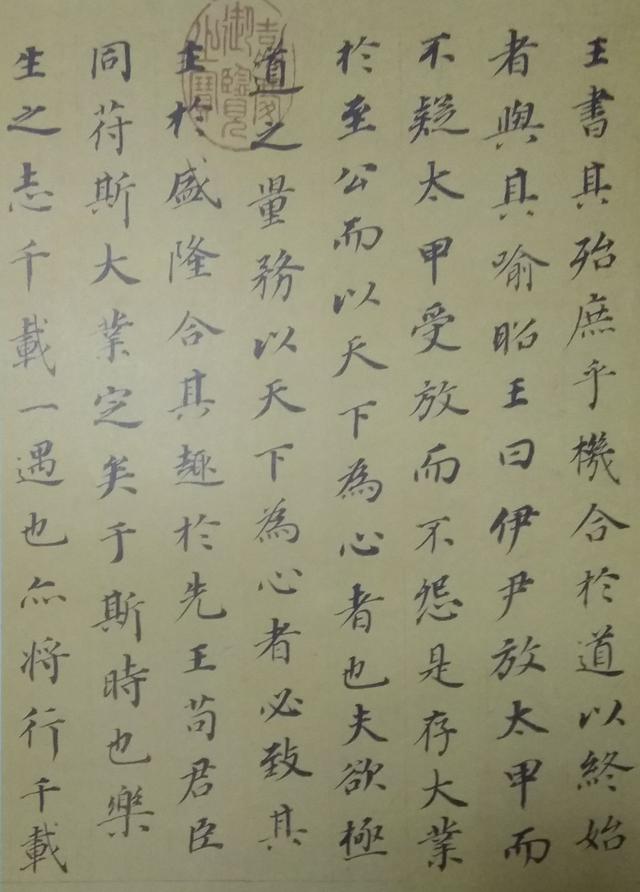 王書其殆庶乎機合於道以終始
者與其喻昭王曰伊尹放太甲而
不疑太甲受放而不怨是存大業
於至公而以天下為心者也夫欲極
道之量務以天下為心者必致其
主於盛隆合其趣於先王苟君臣
同苻斯大業定矣于斯時也樂
生之志千載一遇也亦將行千載
嘉慶御覽之寶